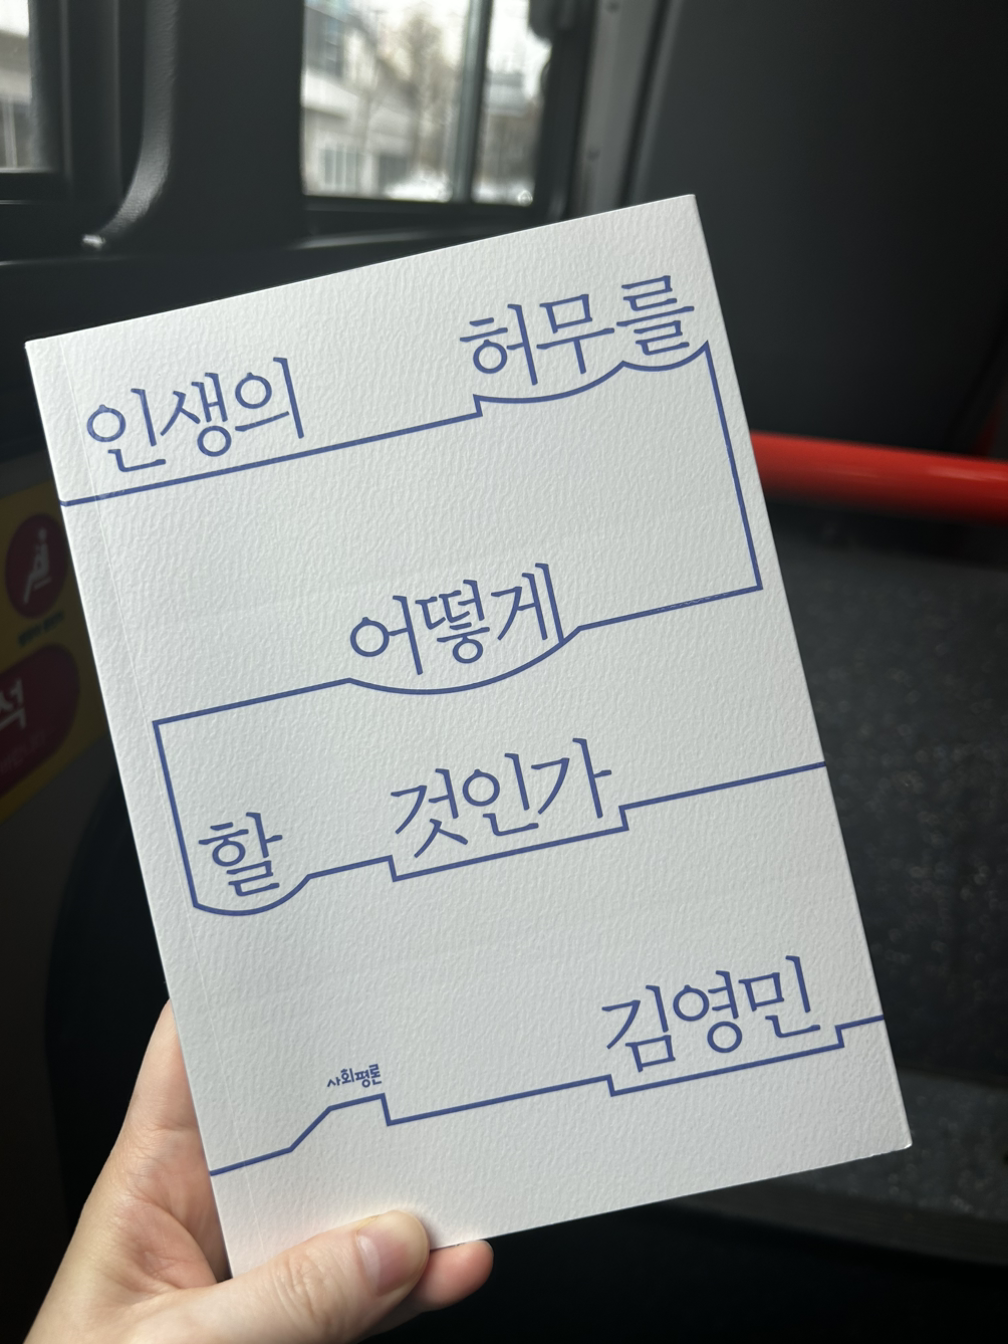 인생의 허무를
어떻게
할 것인가
김영민
사회평론
석